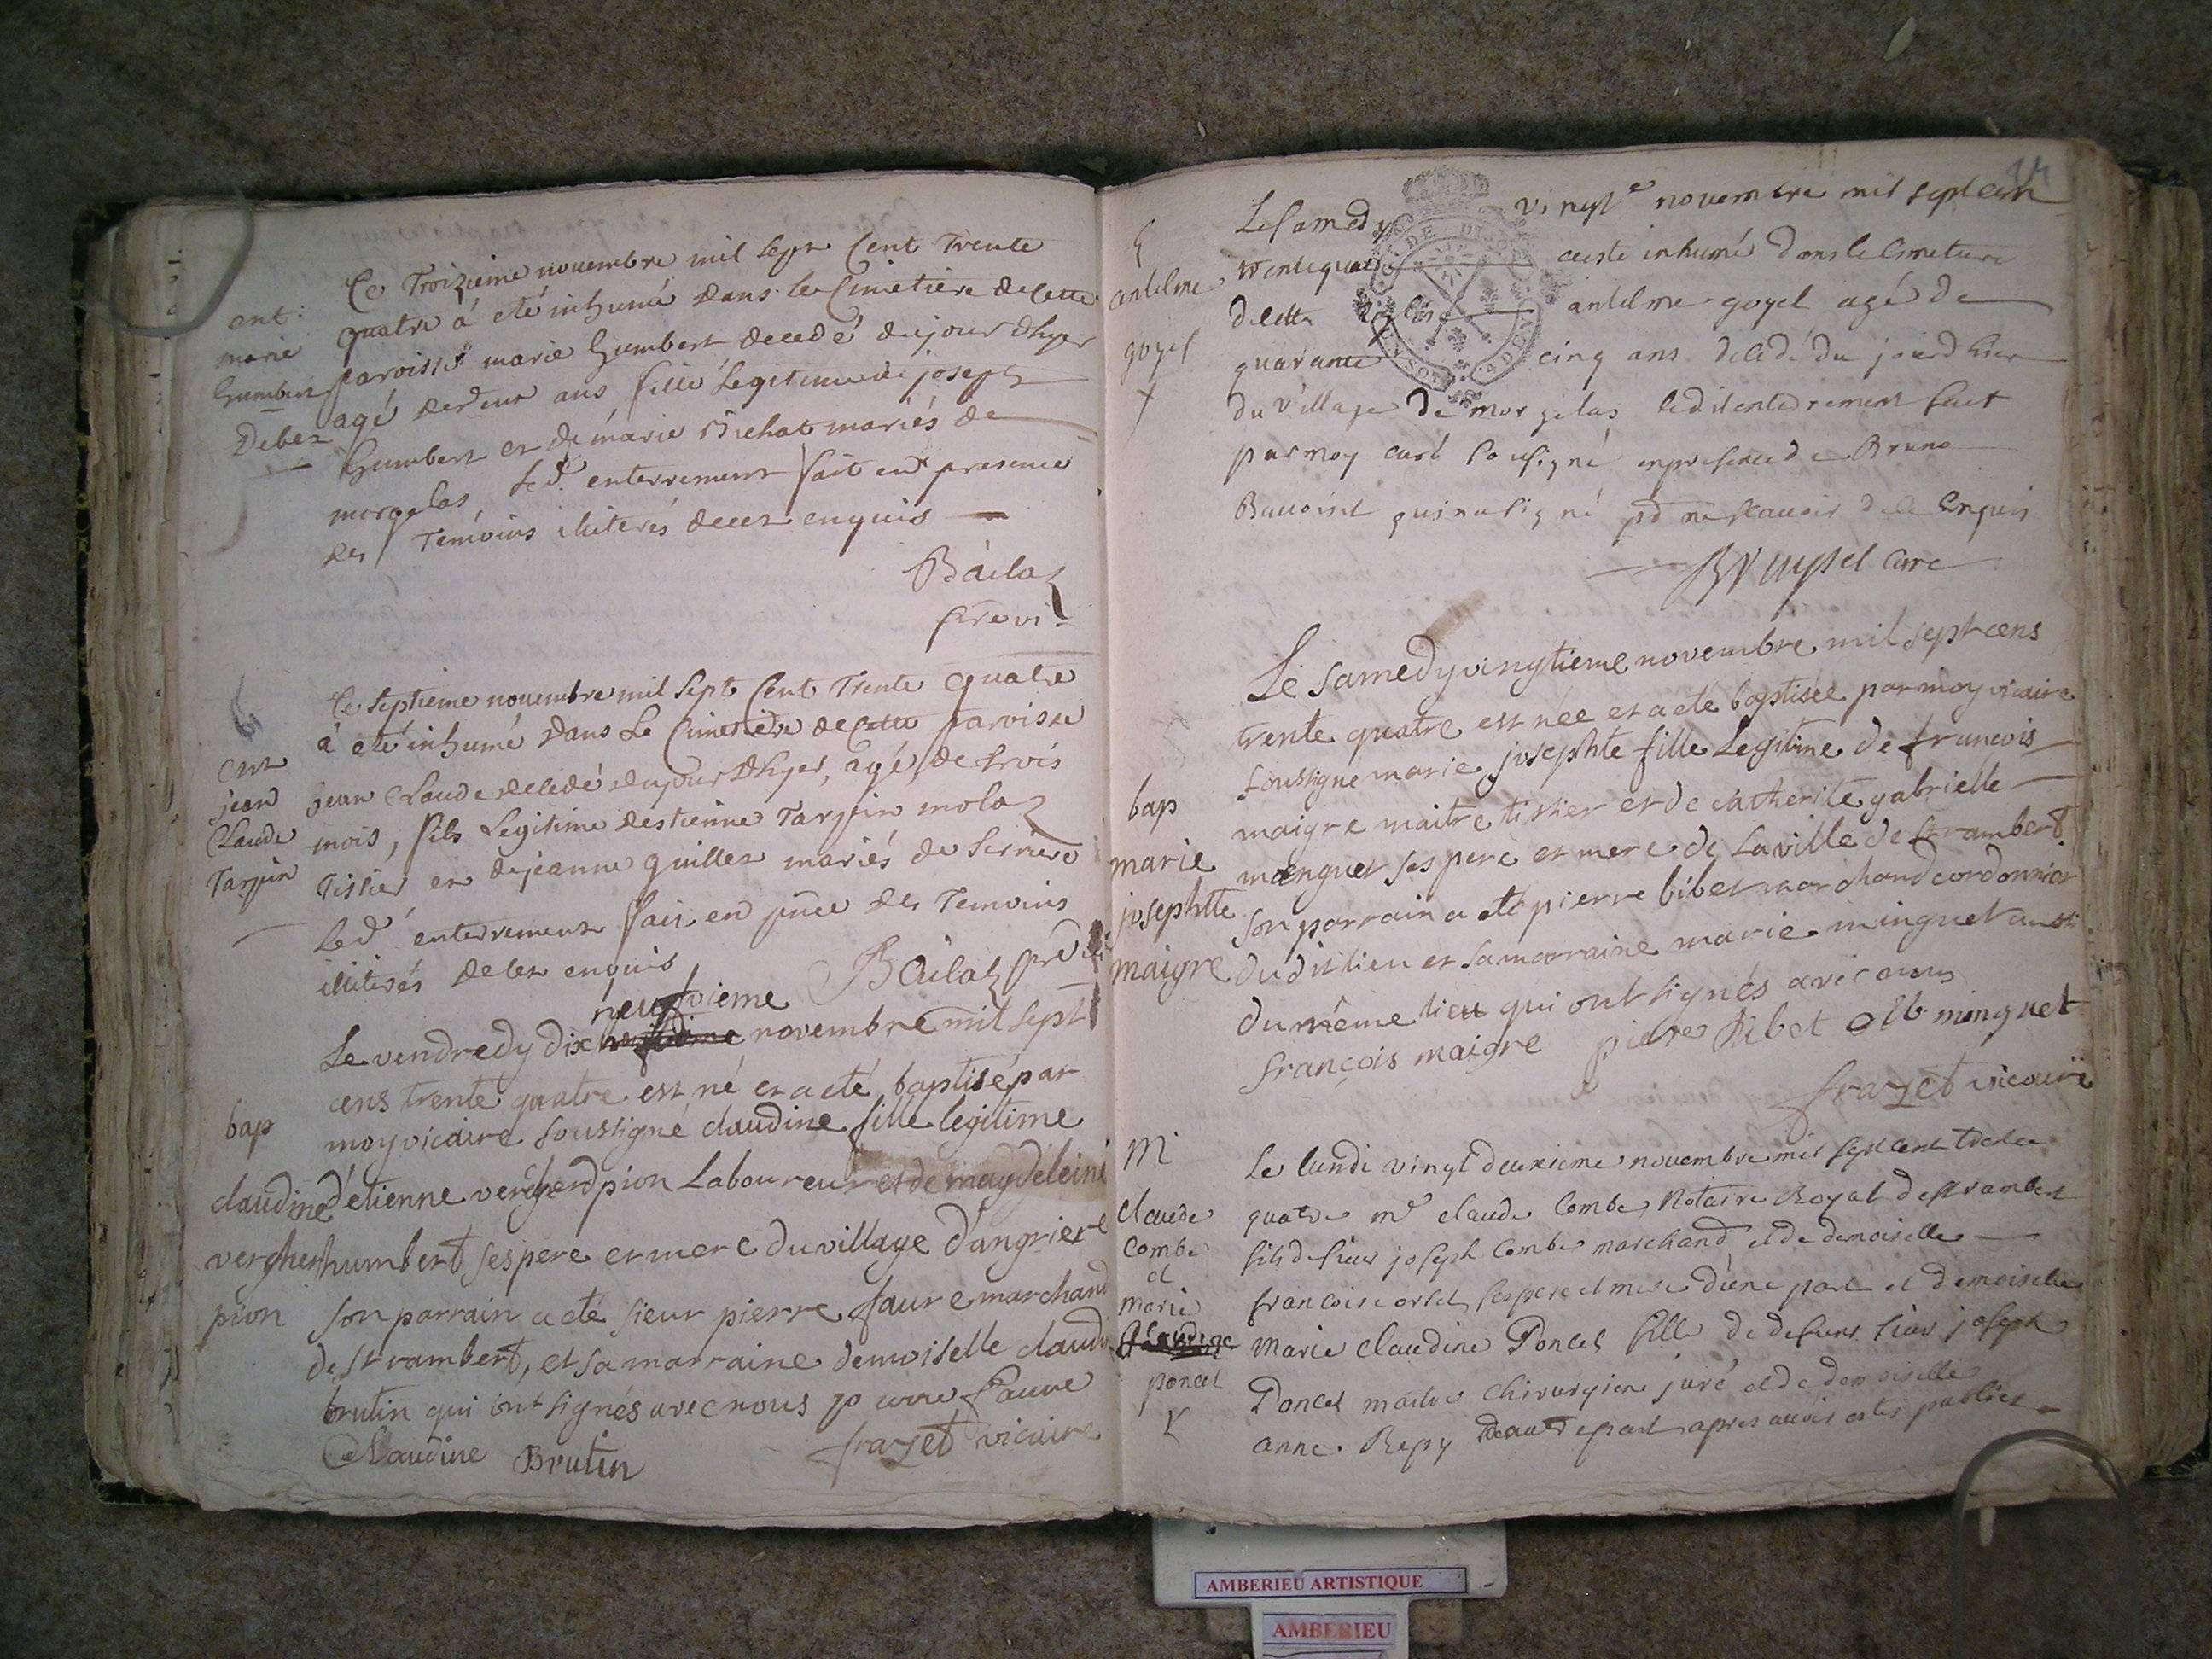 ent:
marie
humbert
Debez
Ce Troizieme novembre mil sept Cent Trente
quatre á eté inhumé dans le Cimetiere de cette
paroisse marie humbert decedé du jour d'hyer
agé de deux ans fille Legitime de joseph
humbert et de marie Michat mariés de
morgelas led. enterrement fait en presence
des Temoins illiterés de ce enquis
Bailaz
pre vi.
ent
jean
Claude
Tarpin
Ce Septieme novembre mil Sept Cent Trente quatre
á eté inhumé dans Le Cimetiere de Cette paroisse
jean Claude decedé du jour d'hyer, agé de trois
mois, fils Legitime destienne Tarpin molaz
Tissier et de jeanne guillet mariés de Serriere
led. enterrement fait en pnce des Temoins
illiterés de ce enquis
Bailaz pre vi
neufvieme
Le vendredy dix novembre mil sept
cens trente quatre est né et a eté baptisé par
moy vicaire soussigné claudine fille legitime
d'etienne vercherd pion Laboureur et de magdeleine
humbert ses pere et mere du village d'angriere
son parrain a eté sieur pierre faure marchand
de st rambert, et sa marraine demoiselle claudine
brutin qui ont signés avec nous pierre faure
Claudine Brutin frazet vicaire
bap
claudine
vercherd
pion
24
antelme
goyet
Le Samedy vingt e novembre mil sept cen
trente quatre a esté inhumé dans le Cimetiere
de cette eglise antelme goyet agé de
quarante cinq ans decedé du jourd hier
du village de morgelas ledit enterrement fait
par moy curé soussigné en presence de Bruno
Bauoirel qui n a signé pr ne scavoir de ce Enquis
curé
bap
marie
josephtte
maigre
Le samedy vingtieme novembre mil sept cens
trente quatre est née et a eté baptisée par moy vicaire
soussigné marie josephte fille Legitime de francois
maigre maitre tissier et de catherite gabrielle
minguet ses pere et mere de La ville de st rambert
son parrain a eté pierre bibet marchand cordonnier
dudit lieu et sa marraine marie minguet aussi
du même lieu qui ont signés avec nous
françois maigre pierre bibet minguet
frazet vicaire
M
claude
Combe
et
marie
claudine
poncet
Le lundi vingt deuxieme novembre mil sept cent trente
quatre me claude Combe Notaire Royal de st rambert
fils de sieur joseph Combe marchand et de demoiselle
francoise orset ses pere et mere d'une part et demoiselle
marie claudine Poncet fille de defunt sieur joseph
Poncet maitre chirurgien juré et de demoiselle
anne Repy d'autre part apres avoir estés publiés
AMBERIEU ARTISTIQUE
AMBERIEU